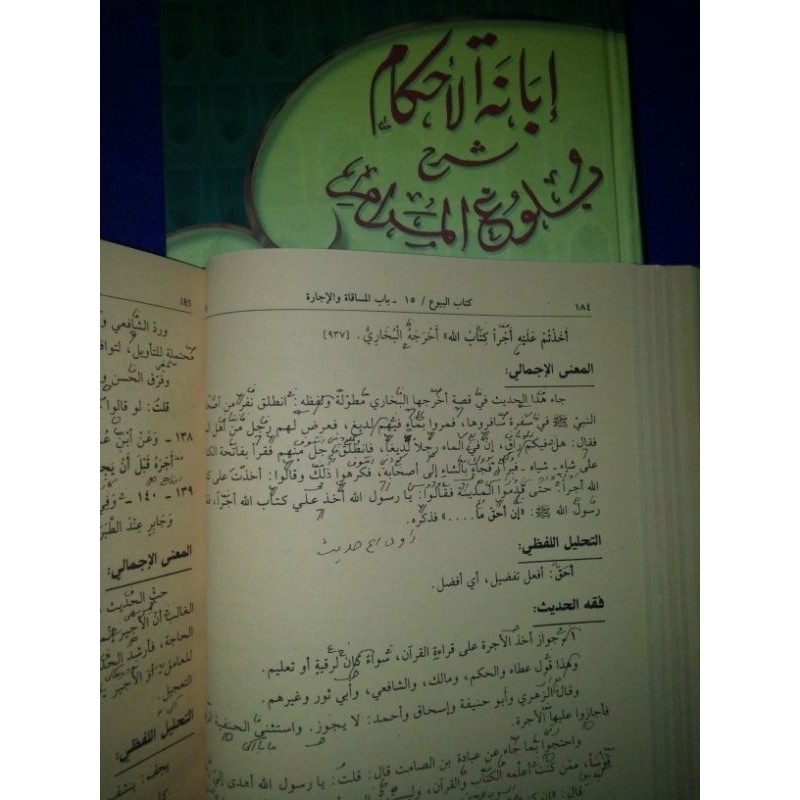 إبانة الأحكام
شرح
بلوغ المرام
١٨٤
كتاب البيوع / ١٥ - باب المساقاة والإجارة
أَخَذْتُمْ عَلَيْهِ أَجْراً كِتَابُ الله» أَخْرَجَهُ الْبُخَارِيُّ. [٩٣٧]
المعنى الإجمالي:
جاء هذا الحديث في قصة أخرجها البخاري مطولة ولفظه: انطلق نفر من
النبيّ ﷺ في سفرة سافروها، فمروا بماء فيهم لديغ، فعرض لهم رجل من أهل
فقال: هل فيكم راق، إن في الماء رجلاً لديغاً، فانطلق رجل منهم فقرأ بفاتحة
على شاء، فبرأ فجاء بالشاء إلى أصحابه، فكرهوا ذلك وقالوا: أخذت على
الله أجراً؟ حتى قدموا المدينة فقالوا: يا رسول الله أخذ على كتاب الله أجراً،
رسول الله ﷺ: «إن أحق ما....» فذكره.
التحليل اللفظي:
أحَقّ: أفعل تفضيل، أي أفضل.
فقه الحديث:
١ - جواز أخذ الأجرة على قراءة القرآن، سواء كان لرقية أو تعليم.
وهذا قول عطاء والحكم، ومالك، والشافعي، وأبي ثور وغيرهم.
وقال الزهري وأبو حنيفة وإسحاق وأحمد: لا يجوز. واستثنى الحنفية
فأجازوا عليها الأجرة.
واحتجوا بما جاء عن عبادة بن الصامت قال: قلت: يا رسول الله أهدى
قوساً، ممن كنت أعلمه الكتاب والقرآن، وليست
١٨٥
ورد الشافعي
محتملة للتأويل،
وفرق الحسن
قلت: لو قالوا
١٣٨ - وَعَنْ ابْنِ
أَجْرَهُ قَبْلَ أَنْ
١٣٩ - ١٤٠ -
وَجَابِرٍ عِنْدَ
المعنى الإجمالي:
حث الحديث
الغالب أن الأجير
الحاجة، فأرشد
للعامل.
التعجيل.
التحليل اللفظي:
يجف: